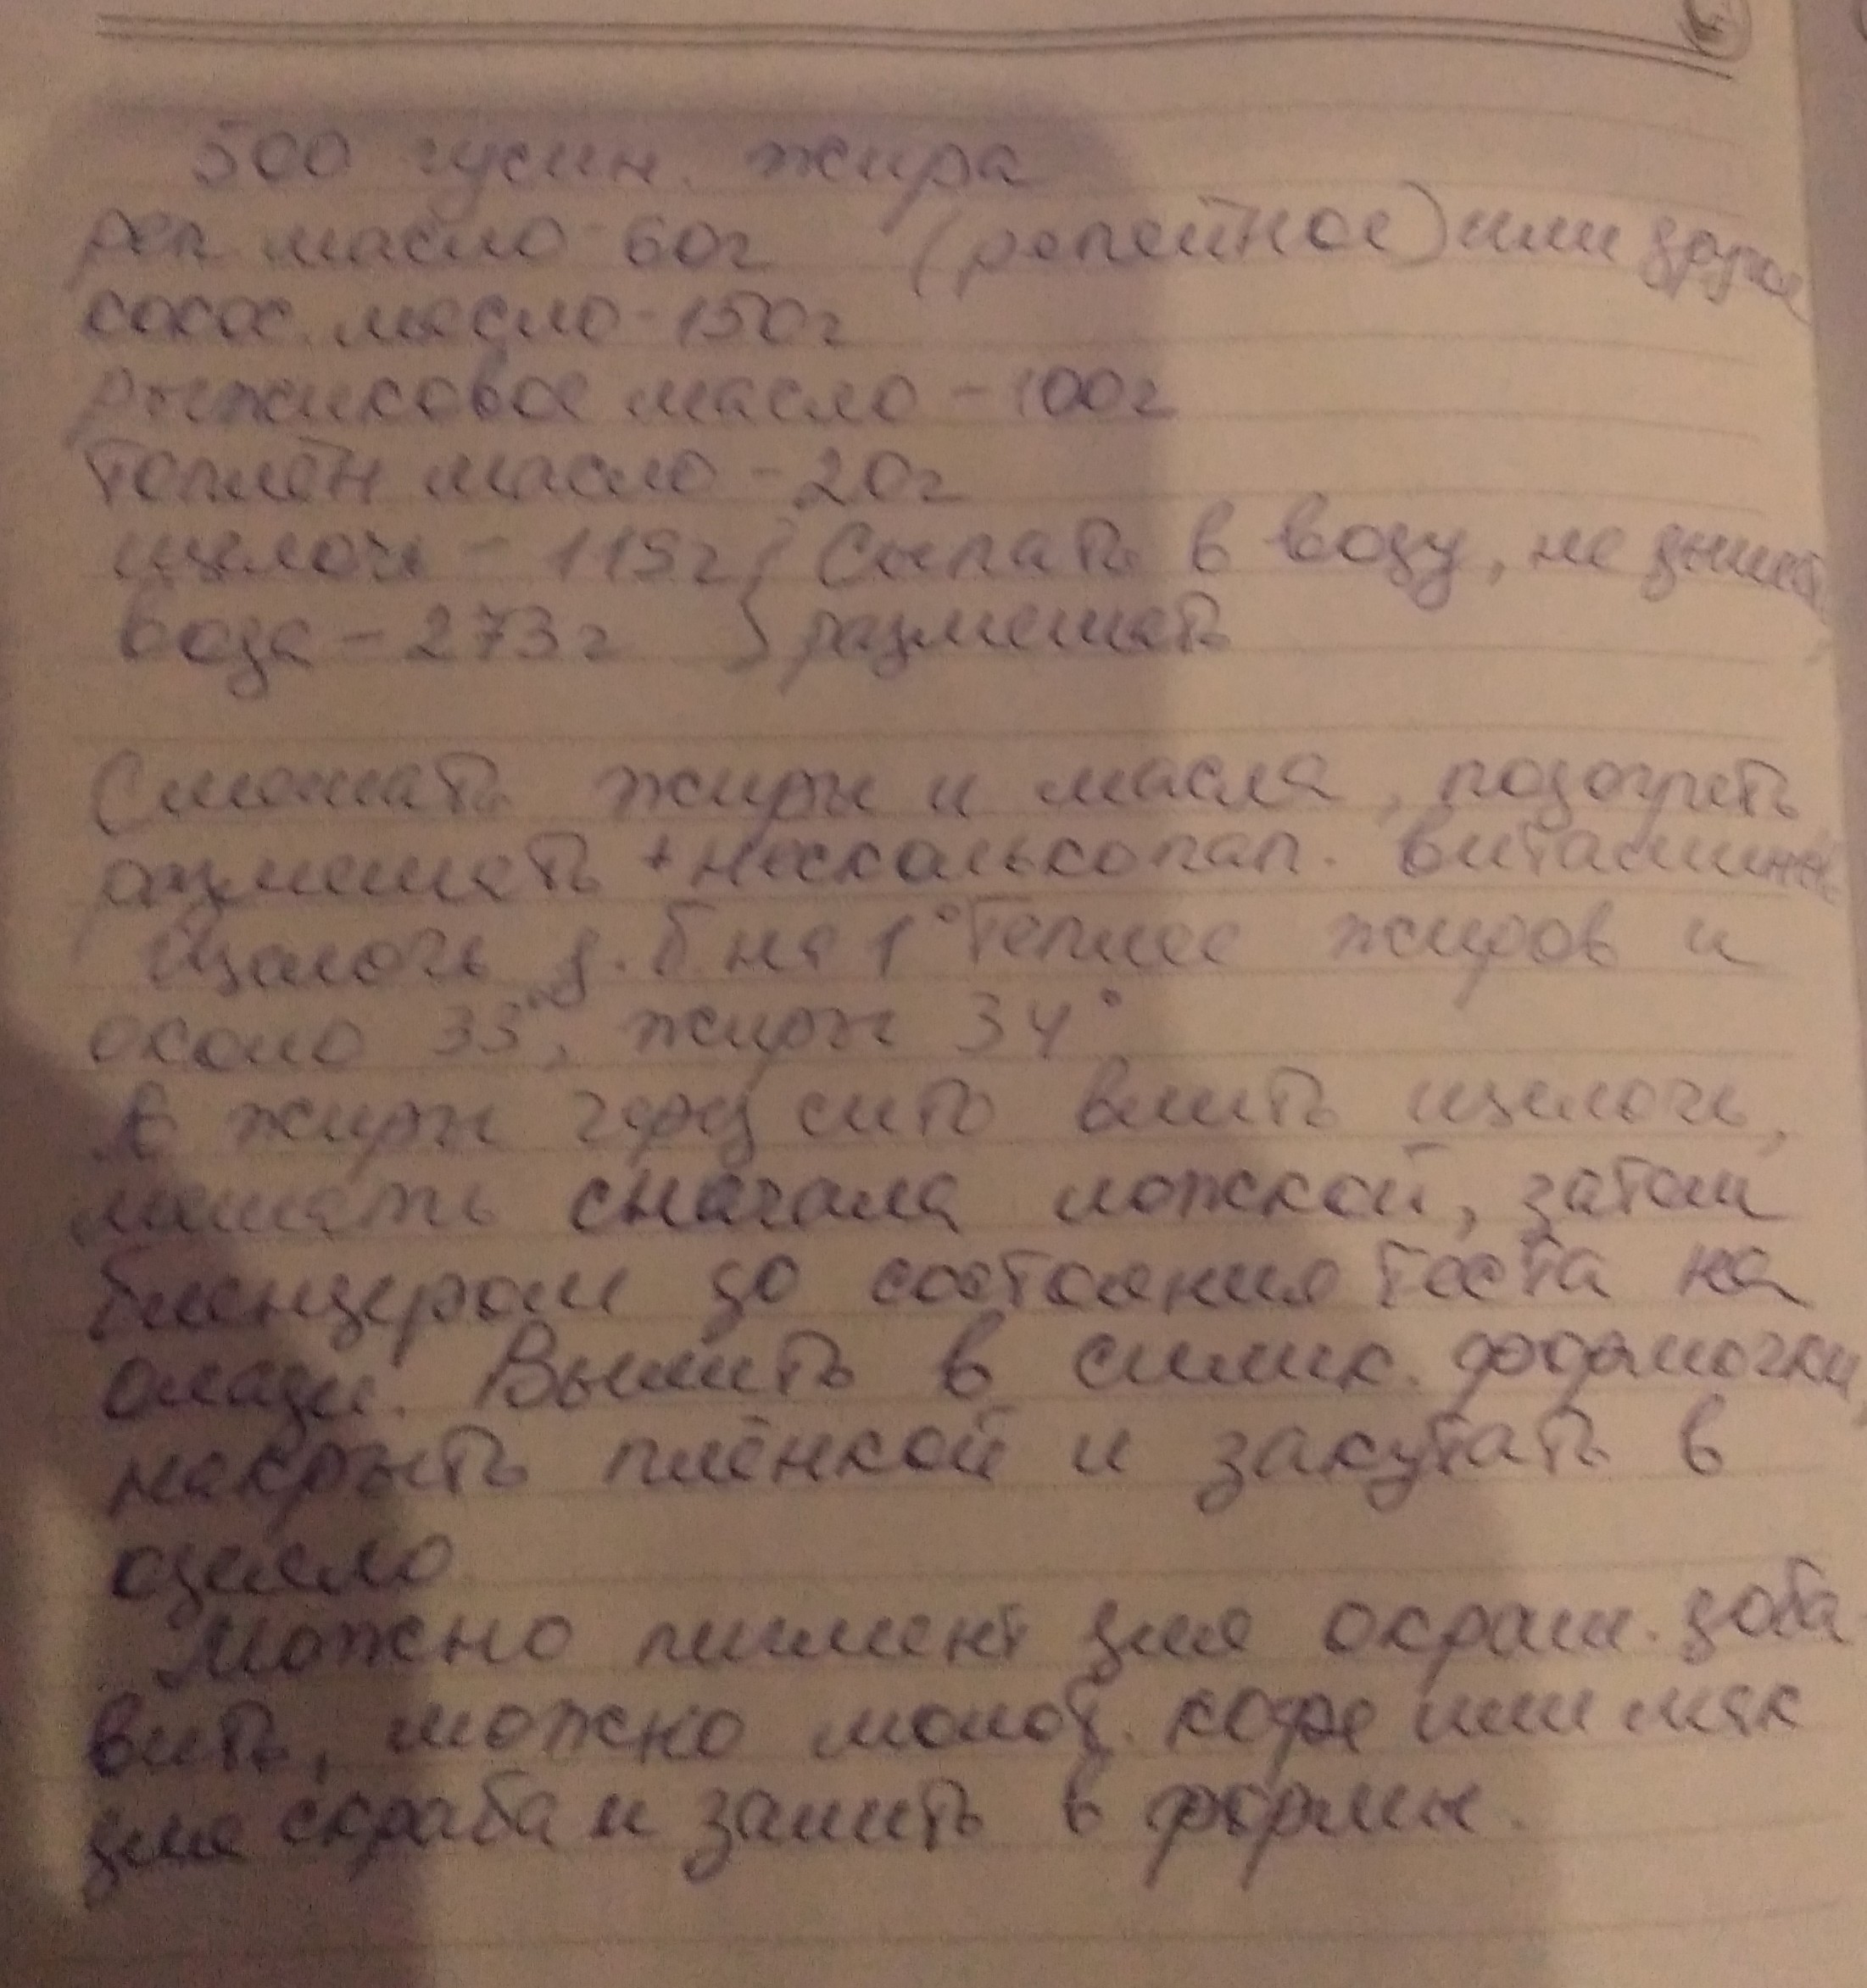 500 гусин. жира
реп масло - 60г (репейное) или другое
кокос. масло - 150г
рыжиковое масло - 100г
топлён масло - 20г
щелочь - 119г } Сыпать в воду, не дышать,
вода - 273г } размешать
Смешать жиры и масла, подогреть
размешать + несколько кап. витамина
Щелочь д.б на 1° теплее жиров и
около 33°, жиры 34°
В жиры через сито влить щелочь,
мешать сначала ложкой, затем
блендером до состояния теста на
олади. Вылить в силик. формочки,
накрыть плёнкой и закутать в
одеяло
Можно пигмент для окраш. доба
вить, можно молот. кофе или мак
для скраба и залить в формы.